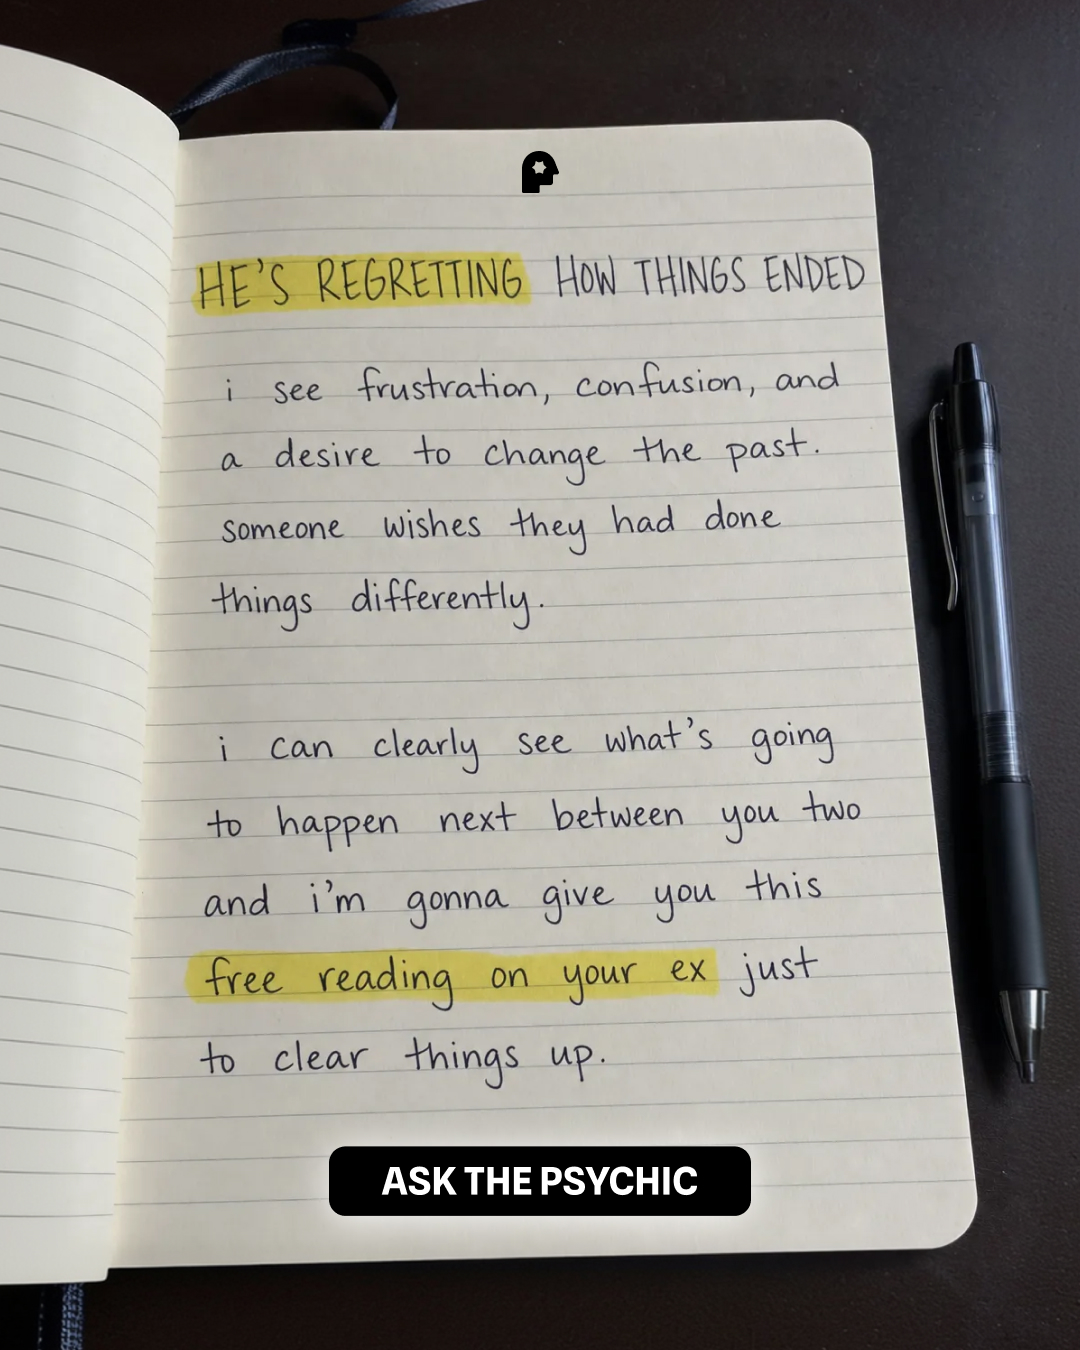 HE'S REGRETTING HOW THINGS ENDED
i see frustration, confusion, and
a desire to change the past.
someone wishes they had done
things differently.
i can clearly see what's going
to happen next between you two
and i'm gonna give you this
free reading on your ex just
to clear things up.
ASK THE PSYCHIC